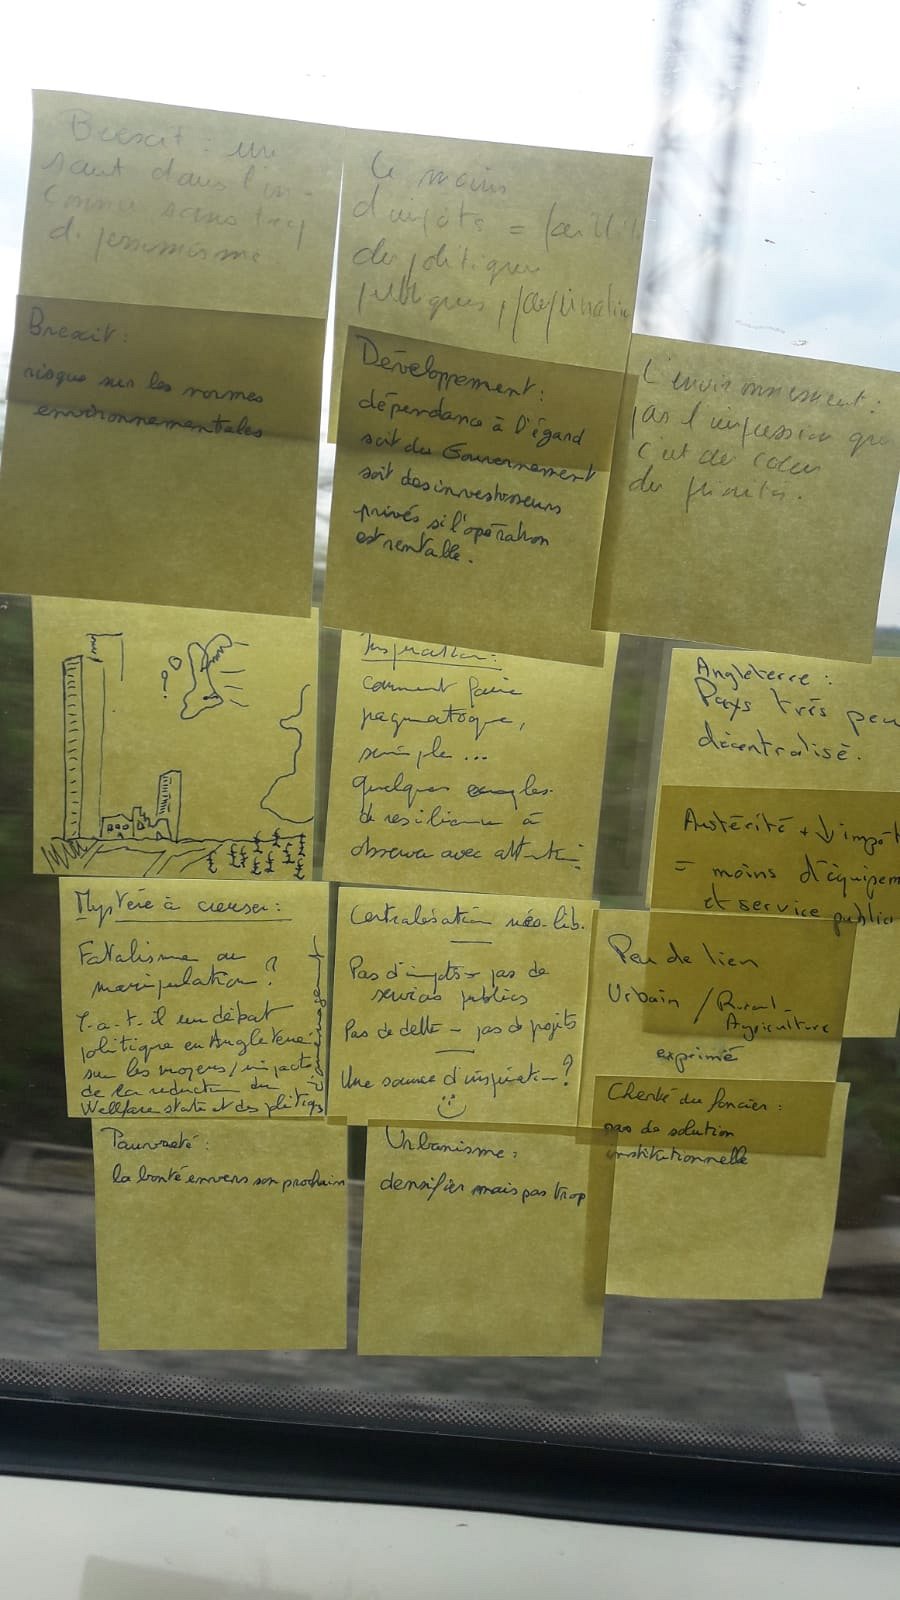 Brexit : un
saut dans l'in-
connu sans trop
de pessimisme
Le moins
d'impôts = faillite
des politiques
publiques,
Brexit :
risque sur les normes
environnementales
Développement :
dépendance à l'égard
soit du Gouvernement
soit des investisseurs
privés si l'opération
est rentable.
L'environnement :
pas l'impression que
c'est au coeur
des priorités.
?
£ £ £ £ £
£ £ £ £ £
Inspiration :
comment faire
pragmatique,
simple ...
quelques exemples
de résilience à
observer avec attention
Angleterre :
Pays très peu
décentralisé.
Austérité + ↓ impôt
= moins d'équipem
et service public
Mystère à creuser :
Fatalisme ou
manipulation ?
Y-a-t-il un débat
politique en Angleterre
sur les moyens/impacts
de la réduction du
Wellfare state et des politiqs
d'aménagement
Centralisation néo-lib.
Pas d'impôts = pas de
services publics
Pas de dette = pas de projets
Une source d'inspiration ?
Peu de lien
Urbain / Rural -
Agriculture
exprimé
Cherté du foncier :
pas de solution
institutionnelle
Pauvreté :
la bonté envers son prochain
Urbanisme :
densifier mais pas trop